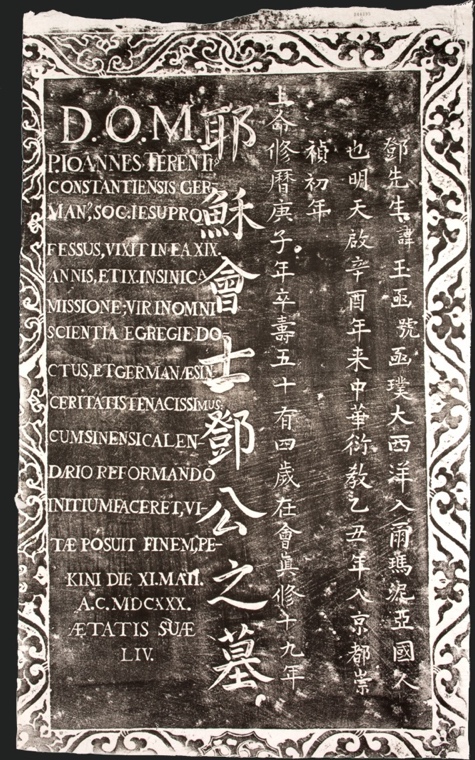 D.O.M.
P.IOANNES TERENTI9
CONSTANTIENSIS GER-
MAN9, SOC:IESU PRO
FESSUS, VIXIT IN EA XIX.
ANNIS, ET IX. IN SINICA
MISSIONE; VIR IN OMNI
SCIENTIA EGREGIE DO-
CTUS, ET GERMANÆ SIN
CERITATIS TENACISSIMUS:
CUM SINENSI CALEN-
DARIO REFORMANDO
INITIUM FACERET, VI-
TÆ POSUIT FINEM, PE-
KINI DIE XI. MAII.
A.C. MDCXXX.
ÆTATIS SUÆ
LIV.
耶穌會士鄧公之墓
鄧先生諱玉函號函璞大西洋入爾瑪泥亞國人
也明天啟辛酉年来中華衍教乙丑年入京都崇
禎初年
上命修曆庚子年卒壽五十有四歲在會眞修十九年